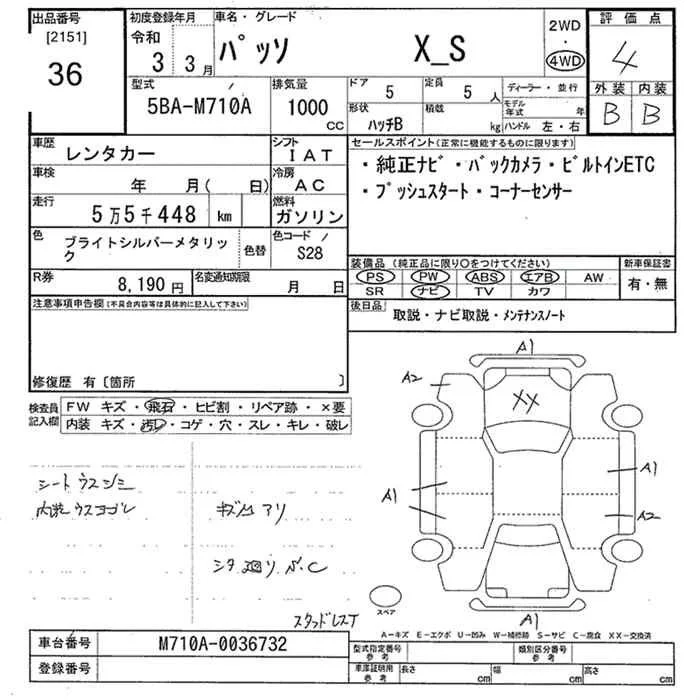 出品番号
[2151]
36
初度登録年月
令和
3 3月
車名・グレード
パッソ X_S
2WD
・
4WD
評価点
4
外装 内装
B B
型式
5BA-M710A
排気量
1000
cc
ドア
5
定員
5 人
形状
ハッチB
積載
kg
ディーラー・並行
モデル年式 年
ハンドル 左・右
車歴
レンタカー
シフト
IAT
車検
年 月( 日)
冷房
AC
走行
5万5千448 km
燃料
ガソリン
色
ブライトシルバーメタリック
色替
色コード
S28
R券
8,190円
名変通知期限
月 日
セールスポイント(正常に機能するものに限ります)
・純正ナビ・バックカメラ・ビルトインETC
・プッシュスタート・コーナーセンサー
装備品(純正品に限り○をつけてください)
PS PW ABS エアB AW
SR ナビ TV カワ
新車保証書
有・無
後日品
取説・ナビ取説・メンテナンスノート
注意事項申告欄(不具合内容等は具体的に記入して下さい)
修復歴 有〔箇所 〕
検査員記入欄
FW キズ・飛石・ヒビ割・リペア跡・×要
内装 キズ・汚れ・コゲ・穴・スレ・キレ・破レ
シートウスシミ
内装ウスヨゴレ
キズ凹アリ
シタ廻りP.C
スタッドレスT
A1
A2
XX
A1
A1
A2
A1
スペア
A−キズ E−エクボ U−凹み W−補修跡 S−サビ C−腐食 XX−交換済
車台番号
M710A-0036732
登録番号
型式指定番号
参考
類別区分番号
参考
車庫証明用
参考
長さ cm
幅 cm
高さ cm